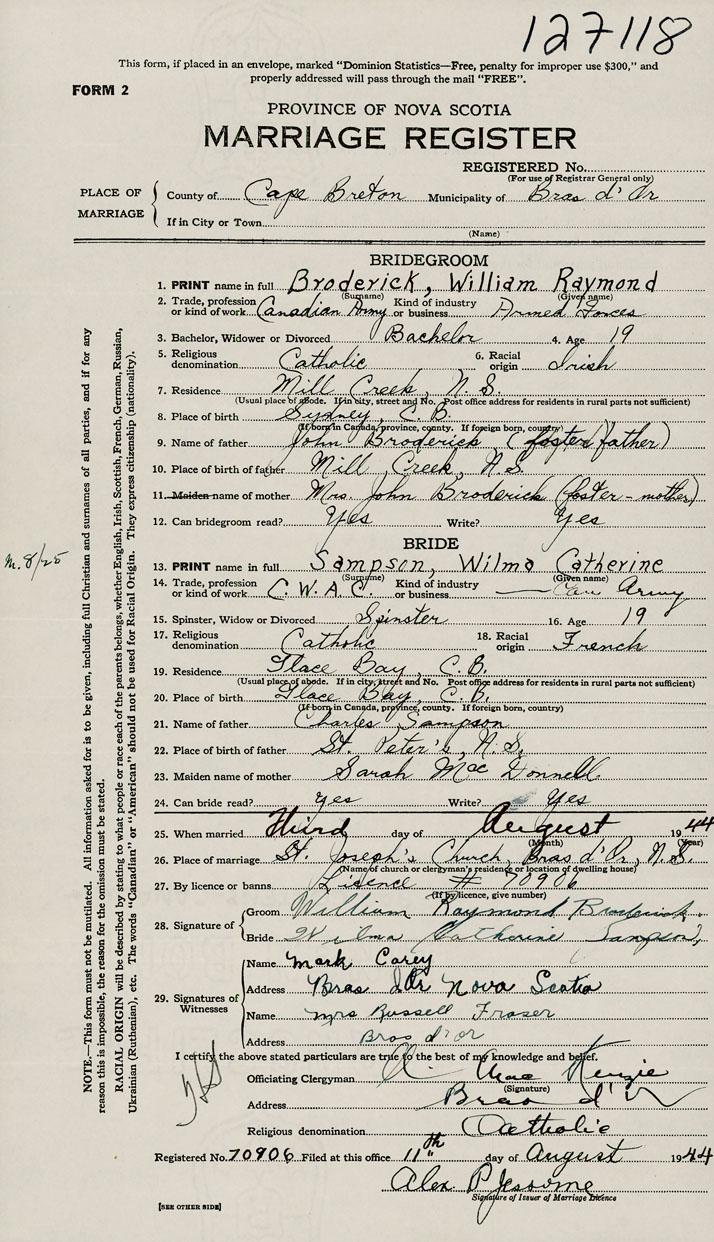 127118
This form, if placed in an envelope, marked "Dominion Statistics—Free, penalty for improper use $300," and
properly addressed will pass through the mail "FREE".
FORM 2
PROVINCE OF NOVA SCOTIA
MARRIAGE REGISTER
REGISTERED No.
(For use of Registrar General only)
PLACE OF MARRIAGE
County of Cape Breton Municipality of Bras d'Or
If in City or Town
(Name)
BRIDEGROOM
1. PRINT name in full Broderick, William Raymond
(Surname) (Given name)
2. Trade, profession or kind of work Canadian Army Kind of industry or business Armed Forces
3. Bachelor, Widower or Divorced Bachelor 4. Age 19
5. Religious denomination Catholic 6. Racial origin Irish
7. Residence Mill Creek, N.S.
(Usual place of abode. If in city, street and No. Post office address for residents in rural parts not sufficient)
8. Place of birth Sydney C.B.
(If born in Canada, province, county. If foreign born, country)
9. Name of father John Broderick (foster father)
10. Place of birth of father Mill Creek, N.S.
11. Maiden name of mother Mrs. John Broderick (foster-mother)
12. Can bridegroom read? Yes Write? Yes
BRIDE
13. PRINT name in full Sampson, Wilma Catherine
(Surname) (Given name)
14. Trade, profession or kind of work C.W.A.C. Kind of industry or business Can Army
15. Spinster, Widow or Divorced Spinster 16. Age 19
17. Religious denomination Catholic 18. Racial origin French
19. Residence Glace Bay, C.B.
(Usual place of abode. If in city, street and No. Post office address for residents in rural parts not sufficient)
20. Place of birth Glace Bay, C.B.
(If born in Canada, province, county. If foreign born, country)
21. Name of father Charles Sampson
22. Place of birth of father St. Peter's, N.S.
23. Maiden name of mother Sarah MacDonnell
24. Can bride read? yes Write? Yes
25. When married Third day of August 1944
(Month) (Year)
26. Place of marriage St. Joseph's Church, Bras d'Or, N.S.
(Name of church or clergyman's residence or location of dwelling house)
27. By licence or banns Lisence # 70906
(If by licence, give number)
28. Signature of
Groom William Raymond Broderick.
Bride Wilma Catherine Sampson,
29. Signatures of Witnesses
Name Mark Carey
Address Bras d'Or Nova Scotia
Name Mrs Russell Fraser
Address Bras d'or
I certify the above stated particulars are true to the best of my knowledge and belief.
Officiating Clergyman MacKenzie
(Signature)
Address Bras d'Or
Religious denomination Catholic
Registered No. 70906 Filed at this office 11th day of August 1944
Alex P Jessome
Signature of Issuer of Marriage Licence
[SEE OTHER SIDE]
NOTE.—This form must not be mutilated. All information asked for is to be given, including full Christian and surnames of all parties, and if for any
reason this is impossible, the reason for the omission must be stated.
RACIAL ORIGIN will be described by stating to what people or race each of the parents belongs, whether English, Irish, Scottish, French, German, Russian,
Ukrainian (Ruthenian), etc. The words "Canadian" or "American" should not be used for Racial Origin. They express citizenship (nationality).
m. 8/25